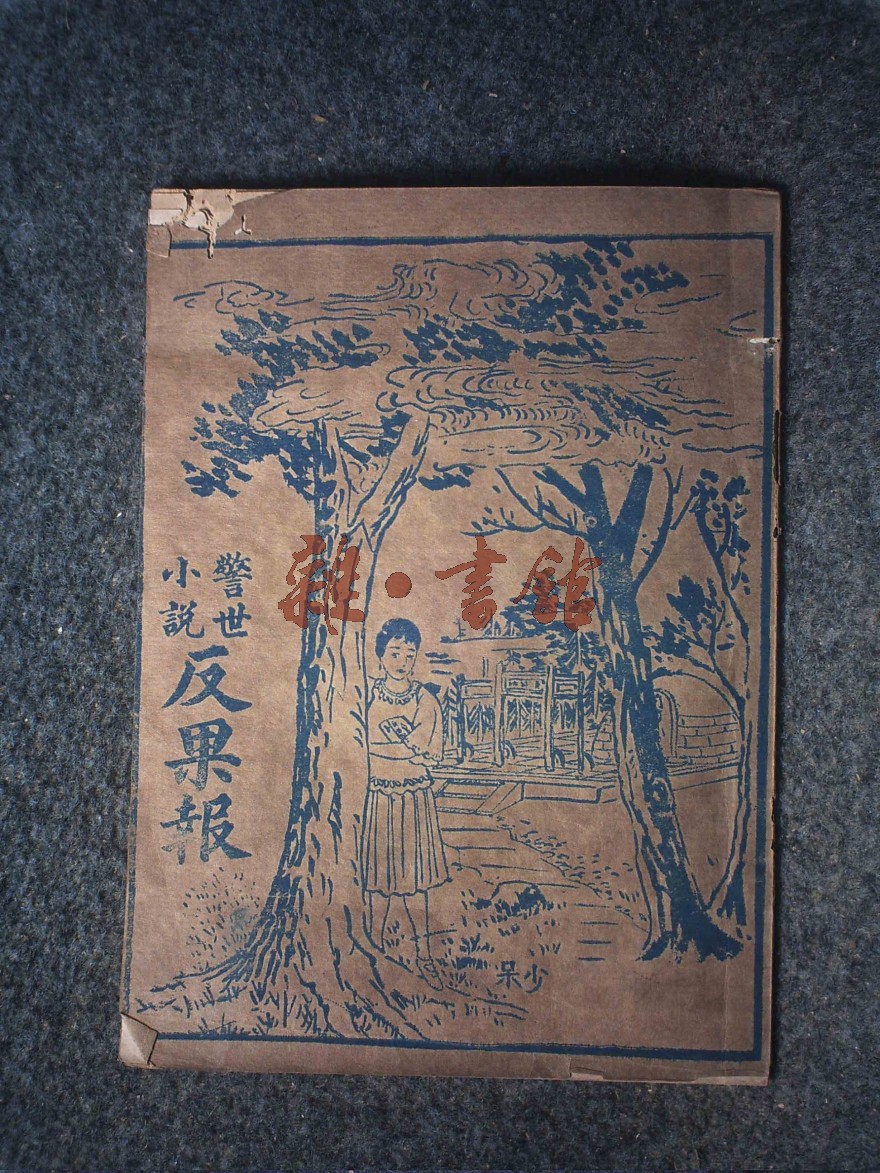 警世
小説
反果報
少呆
雜·書館